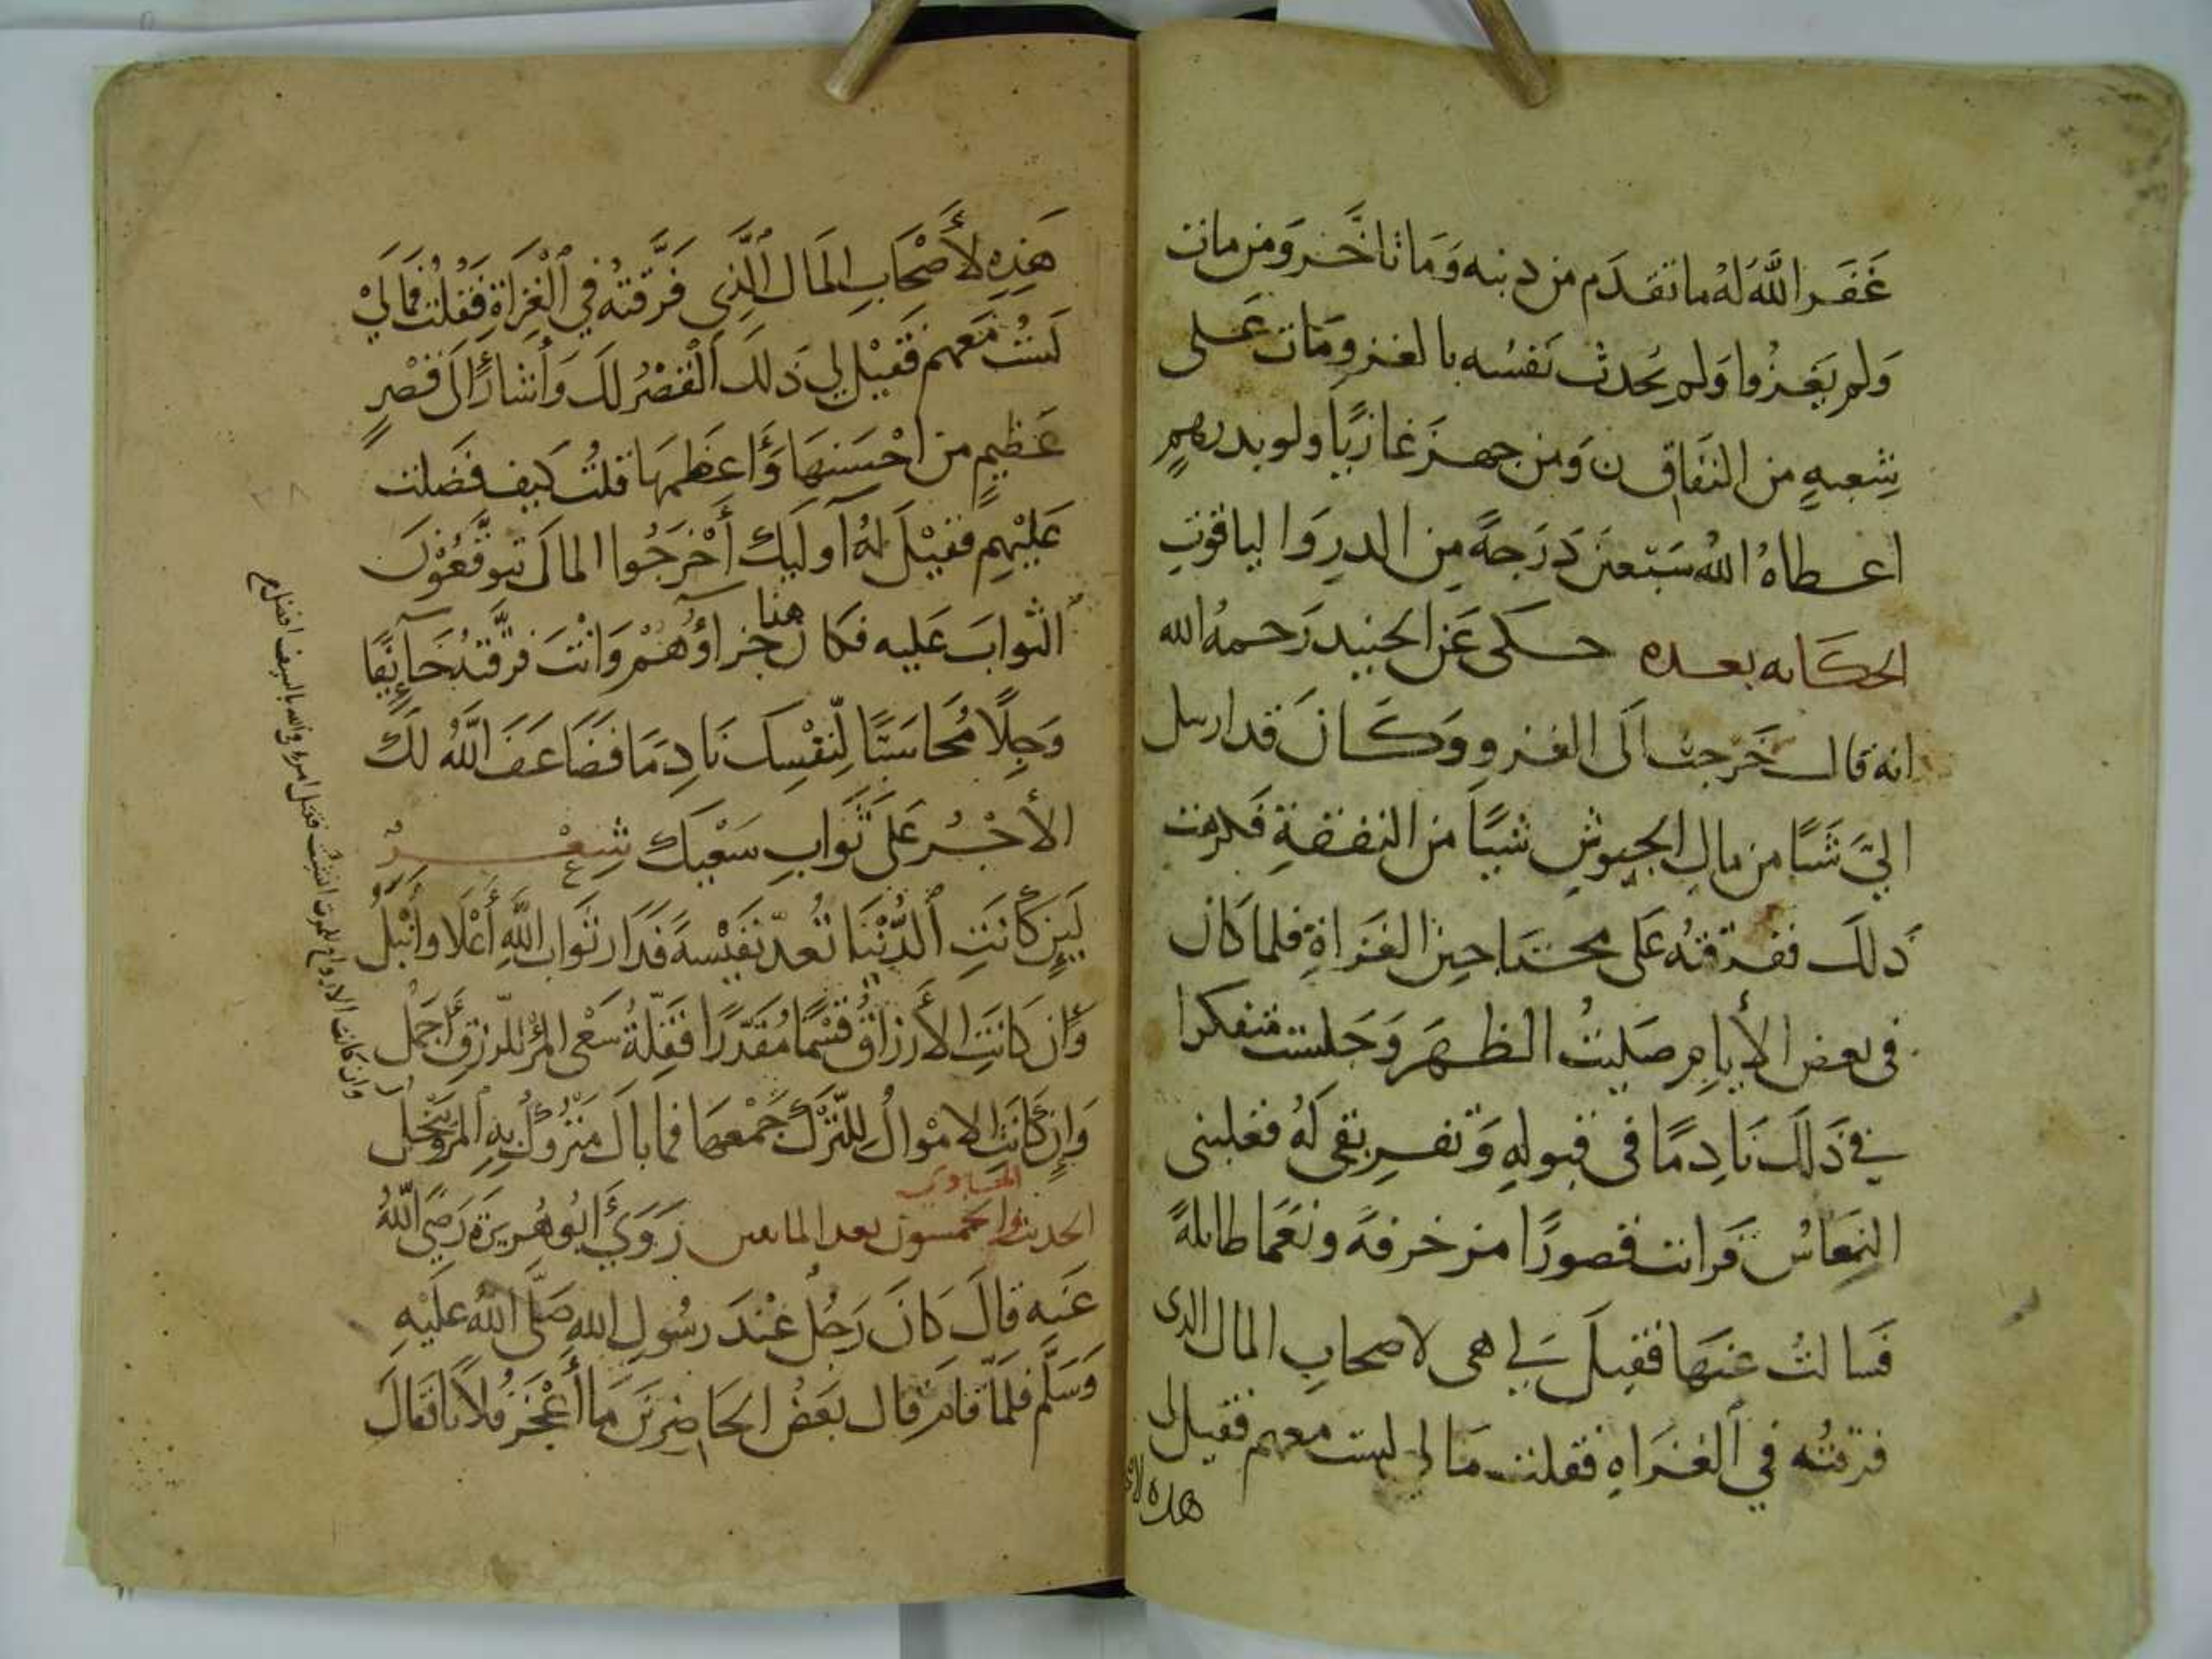 غَفَر اللَّه لهُ ما تقدم من دنبه وَمَا تاخَّر وَمن مات
وَلم يَغزُوا وَلم يُحدث نَفسُه بالغزو مَات عَلى
شِعبهٍ من النفاق ن وَمن جهز غازيًا ولو بدرهمٍ
اعطاهُ اللهُ سَبْعين دَرَجةً مِن الدرِ وَالياقوتِ
الحكايه بعده حكى عَن الجنيد رَحمهُ الله
انه قال خَرجت الَى الغزو وَكان قد ارسل
اليَّ شَيًا من مال الجيوشِ شيًا من النفقةِ فكرهت
ذلكَ ففرقتهُ عَلى محتاجين الغزاةِ فلما كان
فى بعض الأيامِ صَليتُ الظهَر وَجَلست متفكرا
في ذَلكَ نادِمًا فى قبولهِ وَتفريقى لهُ فغلبنى
النعَاسُ فرايت قصورًا مزخرفةً ونعَمًا طايلةً
فَسالتُ عنهَا فقيلَ لي هى لاصحابِ المال الدى
فرقتُه في الغزاهِ فقلت مَا لي لست معهم فقيل لى
هده لا
هَذِهِ لأَصْحَابِ المَالِ الَّذِى فَرَّقتهُ في الْغُزَاةِ فَقُلْتُ فَمَالِيْ
لَسْتُ مَعَهم فَقيْل لي ذَلكَ الْقَصْرُ لكَ وَأَشارَ الَى قصْرٍ
عَظيمٍ من احْسَنهَا وَأَعظمهَا قلتُ كيف فضلت
عَليْهِم فقيْلَ لهُ أوليكَ أَخْرَجُوا المالَ يتوقَّعُوْنَ
الثوابَ عَليه فكان هنا جزاؤُهُمْ وَانْتَ فرَّقتهُ خَايِفًا
وَجِلًا مُحاسَبًا لِنَفْسِكَ نَادِمَا فضَاعَفَ اللَّهُ لكَ
الأَجْرُ عَلَى ثَوابِ سَعْيكَ شِعْرٌ
لَيِن كَانَتِ الدُّنْيَا تُعدّ نَفَيْسهً فدَار ثوابِ اللَّهِ أَعْلَا وأنْبَلُ
وَان كانَتِ الأَرزاقُ قسْمًا مُقدّرًا فقلّةُ سَعْى المرْ للرّزق أَجمل
وَاِنْ كَانَتِ الامْوالُ للتَّرْكِ جَمْعهَا فما بال متْرُوكٌ بهِ المرُ يبْخلُ
الحديث الحادي والخمسون بعد الماتين رَوَيَ أَبُو هُريرَة رَضيَ اللَّهُ
عَنه قالَ كانَ رَجُلٌ عنْدَ رسُولِ اللهِ صَلَّى اللهُ عليْهِ
وَسَلَّم فلمَّا قامَ قال بعضُ الحَاضرِيْن مَا أعْجَز فلانًا فقالَ
وان كانت الارواح للموت انشئت فقتل امرء والله بالسيف افضل